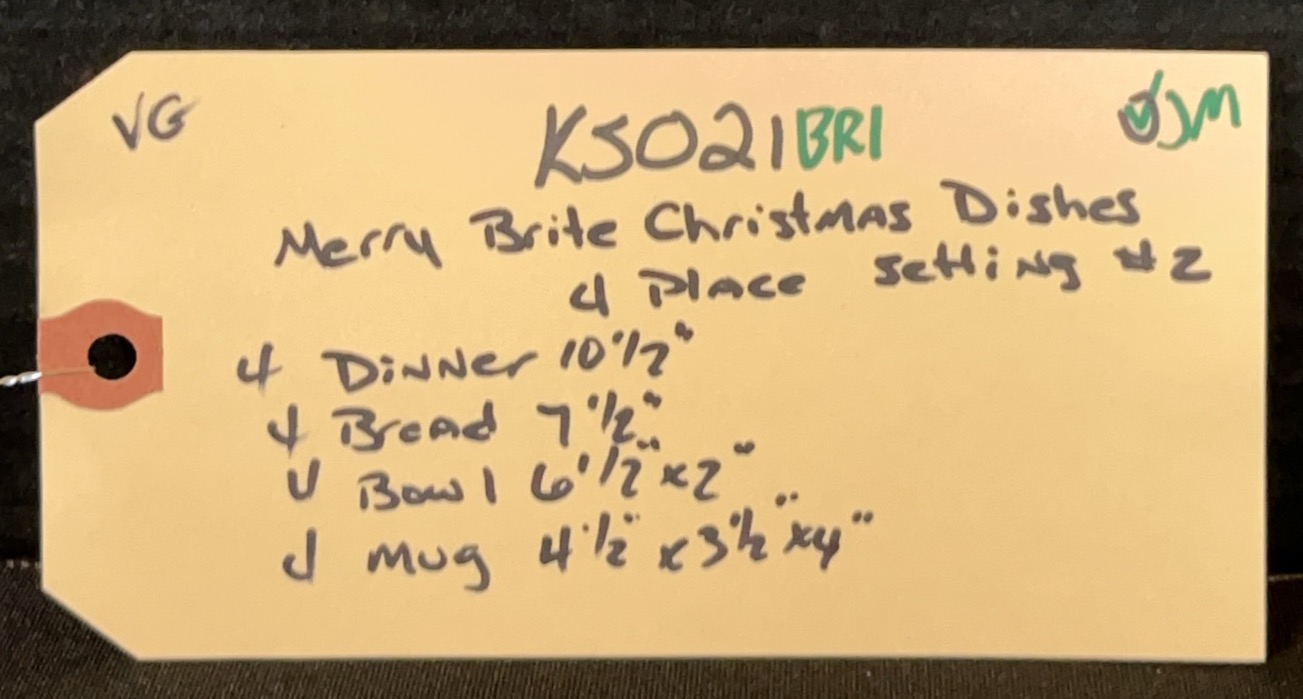 VG
KS021BR1
JM
Merry Brite Christmas Dishes
4 Place setting #2
4 Dinner 10 1/2"
4 Bread 7 1/2"
4 Bowl 6 1/2" x 2"
4 Mug 4 1/2" x 3 1/2" x 4"